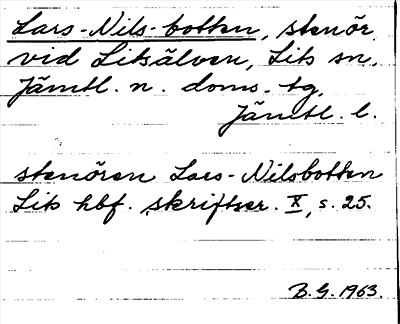 Lars-Nils-botten, stenör
vid Litsälven, Lits sn,
Jämtl. n. doms. tg,
Jämtl. l.
stenören Lars-Nilsbotten
Lits hbf. skriftser. X, s. 25.
B.G. 1963.